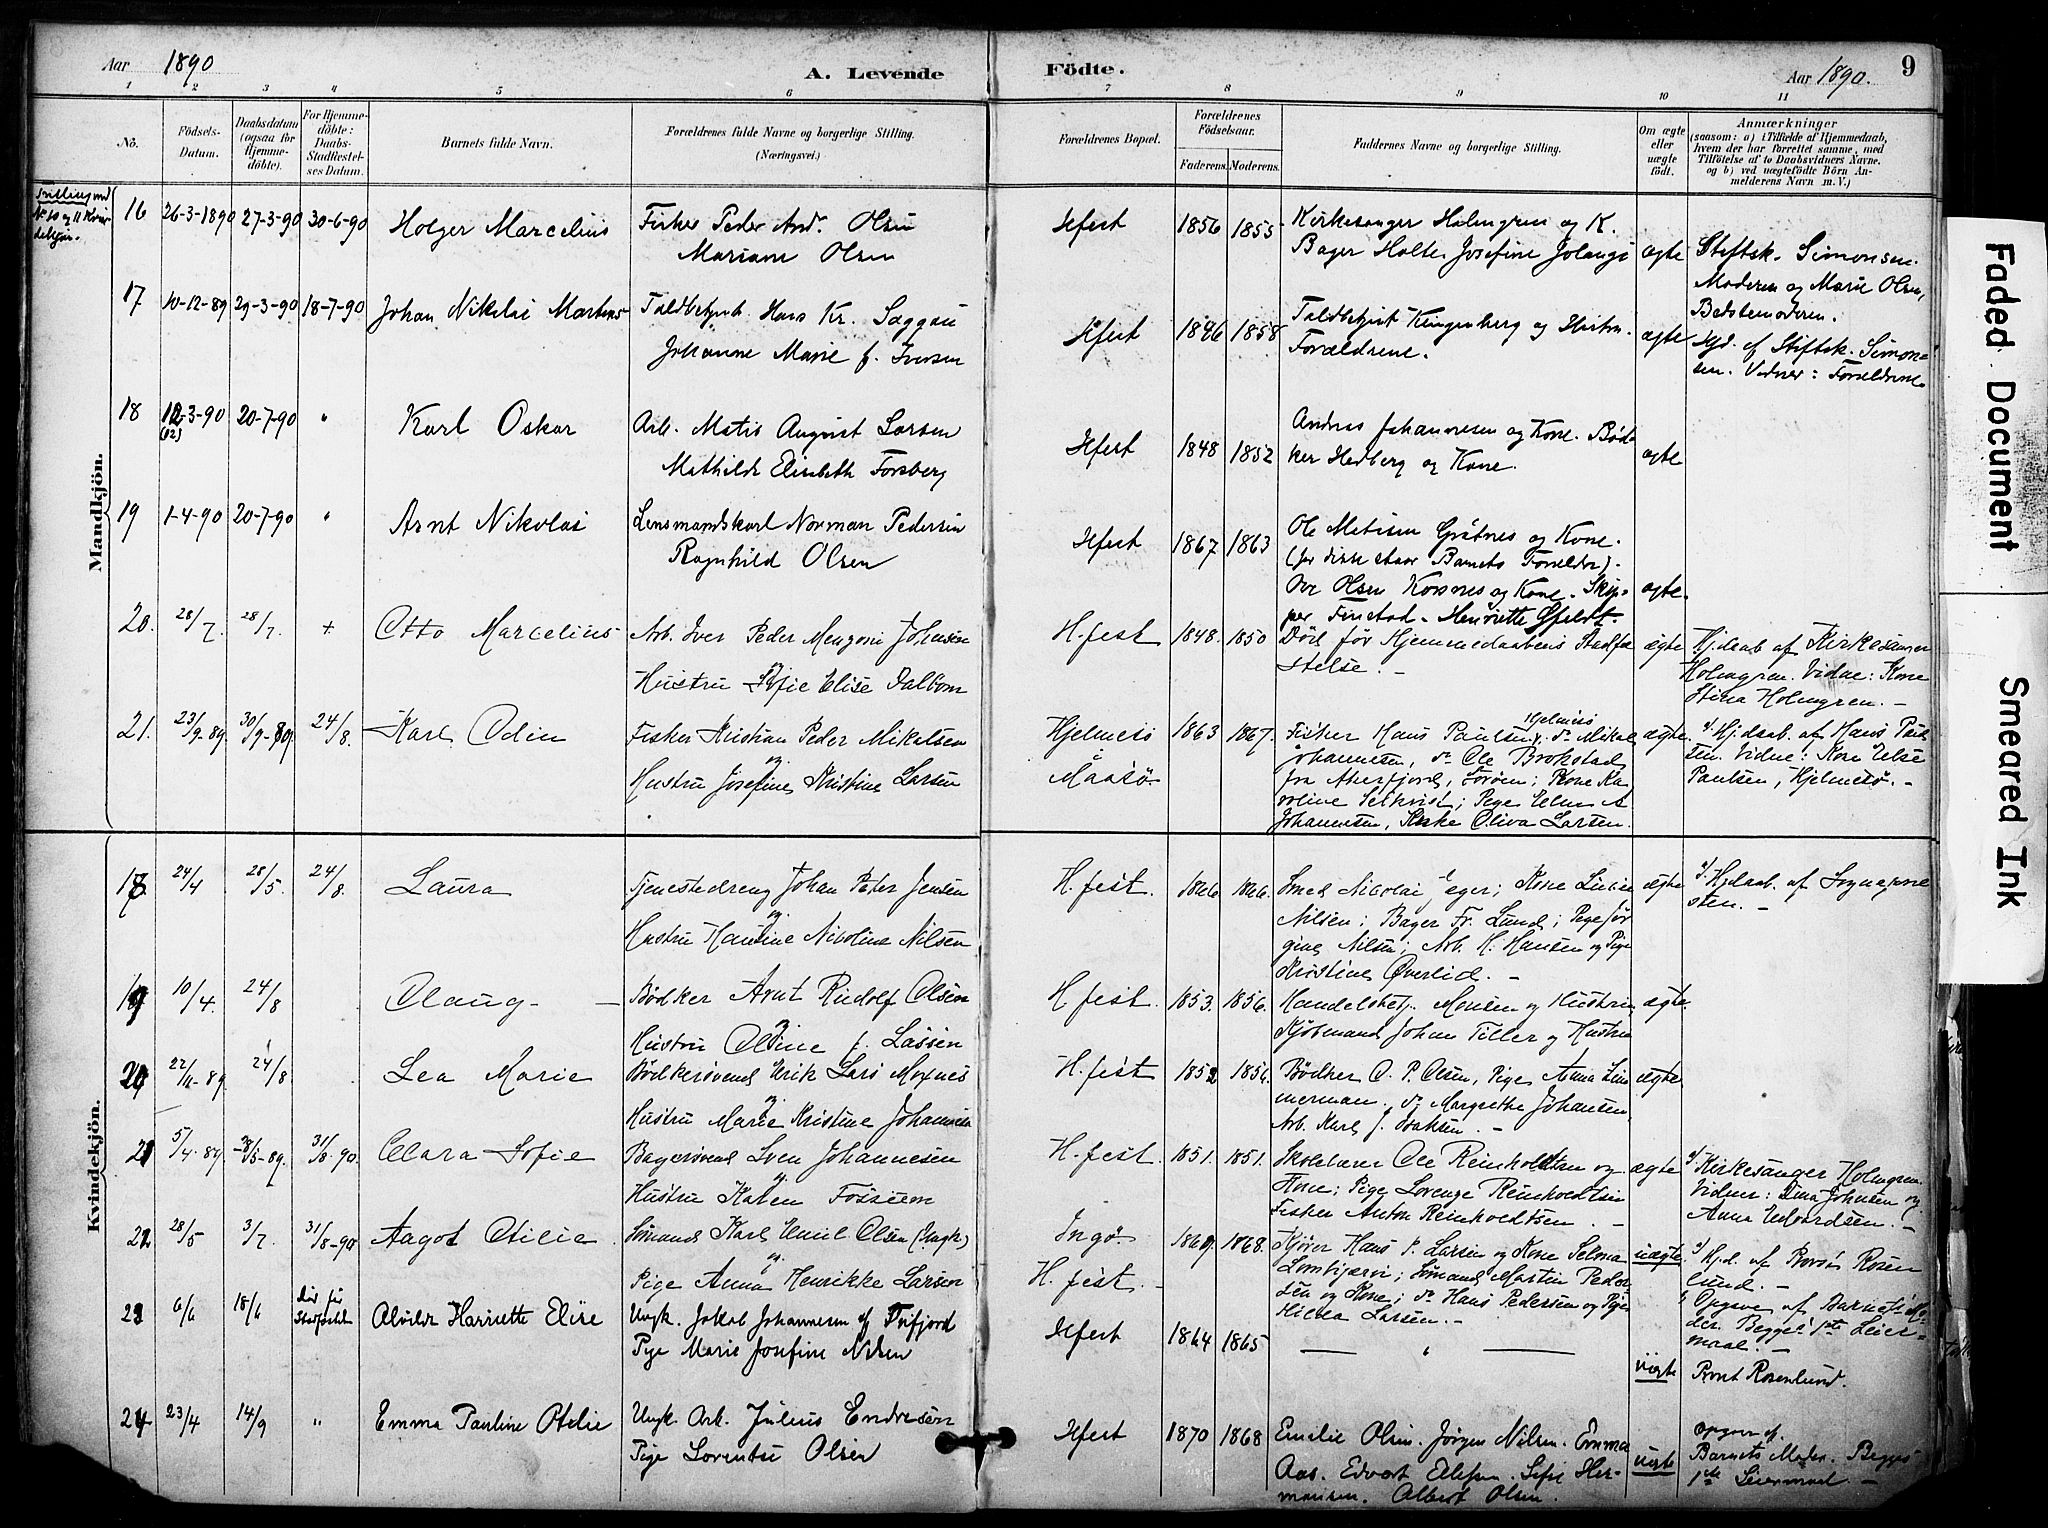 Aar 1890
A. Levende
Födte.
Aar 1890.
9
1 2 3 4 5 6 7 8 9 10 11
No.
Födsels-Datum.
Daabsdatum (ogsaa for Hjemmedöbte).
For Hjemmedöbte: Daabs-Stadfæstelses Datum.
Barnets fulde Navn.
Forældrenes fulde Navne og borgerlige Stilling. (Næringsvei.)
Forældrenes Bopæl.
Forældrenes Födselsaar.
Faderens. Moderens.
Faddernes Navne og borgerlige Stilling.
Om ægte eller uægte födt.
Anmærkninger
(saasom: a) i Tilfælde af Hjemmedaab, hvem der har forrettet samme, med Tilföielse af to Daabsvidners Navne. og b) ved uægtefödte Börn Anmelderens Navn m. V.)
Mandkjön.
16 26-3-1890 27-3-90 30-6-90 Holger Marcelius Fisker Peder And. Olsen
Mariane Olsen
Hfest 1856 1855 Kirkesanger Holmgren og K.
Bager Holte, Josefine
ægte Stiftsk. Simonsen.
Moderen og Marie Olsen,
Bedstemoderen.
17 10-12-89 29-3-90 18-7-90 Johan Nikolai Martens Toldbetjent Hans Kr. Saggau
Johanne Marie f. Iversen
Hfest 1846 1858 Toldbetjent Klingenberg og Hustru.
Forældrene.
ægte Hjd. af Stiftsk. Simon-
sen. Vidner: Forældrene
18 12-3-90 (12) 20-7-90 " Karl Oskar Arb. Matis August Larsen
Mathilde Elisabeth Forsberg
Hfest 1848 1852 Andreas Johannesen og Kone. Bød-
ker Hedberg og Kone.
ægte
19 1-4-90 20-7-90 " Arnt Nikolai Lensmandskarl Norman Pedersen
Ragnhild Olsen
Hfest 1867 1863 Ole Matisen Grøtnes og Kone.
(for disse staar Barnets Forælder).
Ove Olsen Korsnes og Kone. Skip-
per Finstad - Henriette
ægte.
20. 28/7 28/7. + Otto Marcelius Arb. Iver Peder Johansen
og
Hustru Sofie Elise Dalbom
H.fest 1848. 1850 Död för Hjemmedaabens Stadfæ
stelse. -
ægte Hjdaab af Kirkesanger
Holmgren. Vidne: Kone
Stina Holmgren. -
21. 23/9-89. 30/9-89. 24/8. Karl Odin Fisker Kristian Peder Mikalsen
og
Hustru Josefine Kristine Larsen
Hjelmesö
Maasö. 1863 1867. Fisker Hans Paulsen, Hjelmesö do Mikal
Johannesen, do Ole Brokstad
fra Akerfjord, Sørøen; Kone Ka-
roline; Pige Ellen A
Johannesen, Enke Oliva Larsen.
ægte. a/ Hjdaab. af Hans Paul
sen. Vidne: Kone Else
Paulsen, Hjelmesö. -
Kvindekjön.
18 24/4 28/5. 24/8. Laura Tjenestedreng Johan Peter Jensen
og
Hustru Hansine Nicoline Nilsen
H.fest. 1866 1866. Smed Nicolai Jeger; Kone Lucie
Nilsen; Bager Fr. Lund; Pige Jør
gine Nilsen; Arb. H. Hansen og Pige
Kristine Øverlid. -
ægte a/ Hjdaab. af Sognepre
sten. -
19 10/4. 24/8 Olaug - Bödker Arnt Rudolf Olsen
og
Hustru Oline f. Lassen
H.fest. 1853. 1856. Handelsbetj. Monsen og Hustru,
Kjöbmand Johan Tiller og Hustru
ægte.
20 22/11-89. 24/8 Lea Marie Bödkersvend Erik Lars Moxnes
og
Hustru Marie Kristine Johannesen
H.fest 1852 1856. Bödker O. P. Olsen, Pige Anna Zim
merman. do Margrethe Johansen,
Arb. Karl J. Isaksen. -
ægte
21 5/4-89. 28/5-89. 31/8-90. Clara Sofie Bagersvend Sven Johannesen
og
Hustru Karen Fossum
H.fest. 1851. 1851. Skolelærer Ole Reinholdtsen og
Kone; Pige Lorenze Reinholdtsen
Fisker Anton Reinholdtsen. -
ægte a/ Kirkesanger Holmgren.
Vidner: Dina Johnsen og
Anna Edvardsen. -
22 28/5 3/7 31/8-90 Aagot Otilie Sömand Karl Emil Olsen (Ungk.)
og
Pige Anna Henrikke Larsen
Ingö.
H.fest. - 1869. 1868. Kjörer Hans P. Larsen og Kone Selma
; Sömand Martin Peder
sen og Kone; do Hans Pedersen og Pige
Hilda Larsen. -
uægte a/ Hjd. af Provsti Rosen
lund. -
b/ Opgave af Barnets Mo-
der. Begges 1ste Leier-
maal. -
23 6/6 18/6 död för Stadfæstelse Alvilde Harriette Elise Ungk. Jakob Johannesen af Trifjord
Pige Marie Josefine Nilsen
Hfest 1864 1865 — " — uægte Provst Rosenlund.
24 23/4 14/9 " Emma Pauline Otelie Ungk. Arb. Julius Endresen
Pige Lorentse Olsen
Hfest 1870 1868 Emelie Olsen. Jørgen Nilsen. Emma
Aas. Edvart Ellefsen. Sofie Her-
mansen. Albert Olsen.
uægte opgivn af
Barnets Moder. Begges
1ste Leiermaal -
Faded Document
Smeared Ink